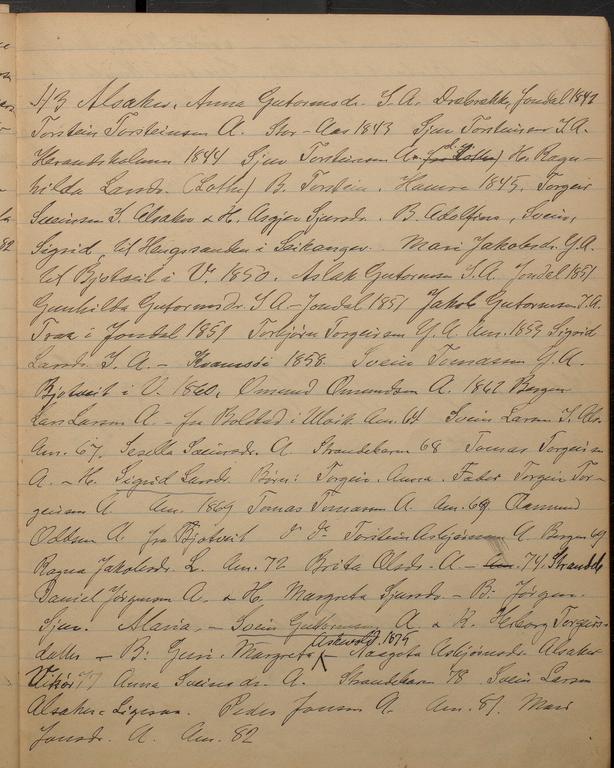 43 Alsaker. Anna Gutormsdr. I. A. Drebrekke, Jondal 1842
Torstein Torsteinsen A. Stor-Aas 1843 Sjur Torsteinsen I. A.
Herandsholmen 1844 Sjur Torsteinsen A. H. Ragn-
hilda Larsdr. (Lothe) B. Torstein. Hamre 1845. Torgeir
Sveinsen I. Alsaker & H. Asgjer Sjursdr. B. Adolfina, Svein,
Sigrid, til Haugsanden i Leikanger. Mari Jakobsdr. Y. A.
til Bjotveit i U. 1850. Aslak Gutormsen I. A. Jondal 1851
Gunhilda Gutormsdr. I A - Jondal 1851 Jakob Gutormsen I. A.
i Jondal 1851 Torbjörn Torgeirsen Y. A. Am. 1859 Sigrid
Larsdr. I. A. - Kvamsöi 1858. Svein Tomassen Y. A.
Bjotveit i U. 1860. Omund Omundsen A. 1862 Bergen
Lars Larsen A. - fra Bolstad i Am. 64 Svein Larsen I. Als.
Am. 67. Sesella Sveinsdr. A Strandebarm 68 Tomas Torgeirsen
A. - H. Sigrid Larsdr. Börn: Torgeir. Anna. Fader Torgeir Tor-
geirsen A Am. 1869 Tomas Tomassen A. Am. 69 Aamund
Oddsen A. fra Bjotveit Torstein Asbjörnsen A. Bergen 69
Ragna Jakobsdr. L. Am. 72 Brita Olsdr. A - Am. 74. Strandeb
Daniel Jörgensen A. & H. Margreta Sjursdr - B: Jörgen.
Sjur. Maria, - Svein Gutormsen A. & K. Herborg Torgeirs
datter - B: Guri. Margreta Askvold 1875 Aagota Asbjörnsdr. Alsaker
Vikör 77 Anna Sveinsdr. A. Strandebarm 78 Svein Larsen
Alsaker. Peder Jonsen A. Am. 81. Mari
Jonsdr. A. Am. 82